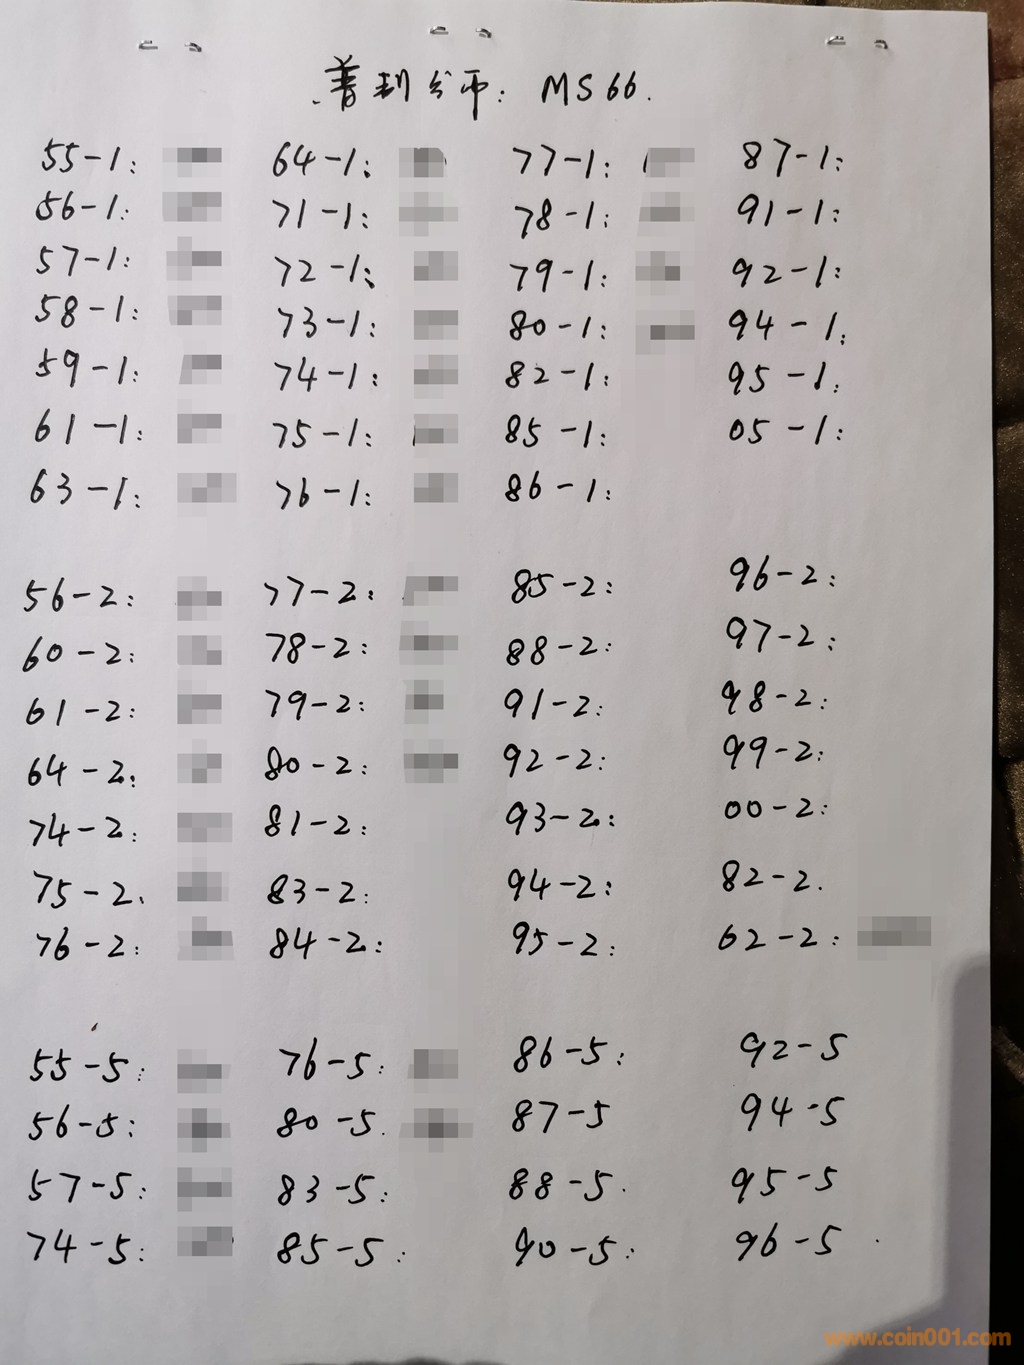 普制分币: MS66.
55-1: 64-1: 77-1: 87-1:
56-1: 71-1: 78-1: 91-1:
57-1: 72-1: 79-1: 92-1:
58-1: 73-1: 80-1: 94-1:
59-1: 74-1: 82-1: 95-1:
61-1: 75-1: 85-1: 05-1:
63-1: 76-1: 86-1:
56-2: 77-2: 85-2: 96-2:
60-2: 78-2: 88-2: 97-2:
61-2: 79-2: 91-2: 98-2:
64-2: 80-2: 92-2: 99-2:
74-2: 81-2: 93-2: 00-2:
75-2. 83-2: 94-2: 82-2.
76-2: 84-2: 95-2: 62-2:
55-5: 76-5: 86-5: 92-5
56-5: 80-5. 87-5 94-5
57-5: 83-5: 88-5. 95-5
74-5: 85-5: 90-5: 96-5.
www.coin001.com